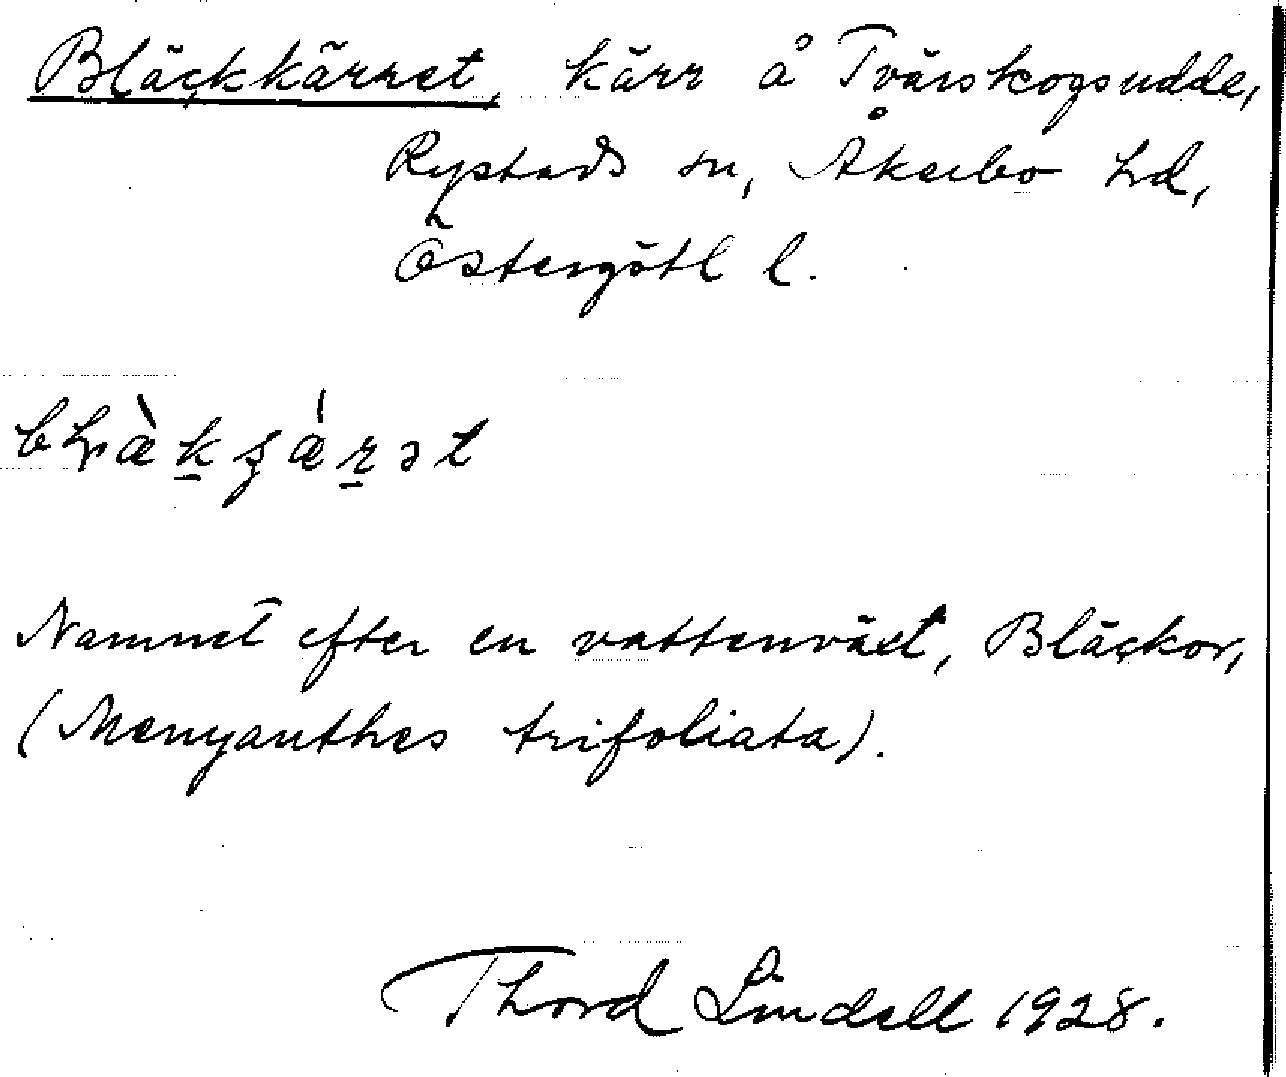 Bläckkärret, kärr å Tvärskogsudde,
Rystads sn, Åkerbo hd,
Östergötl l.
Namnet efter en vattenväxt, Bläckor,
(Menyanthes trifoliata).
Thord Lindell 1928.